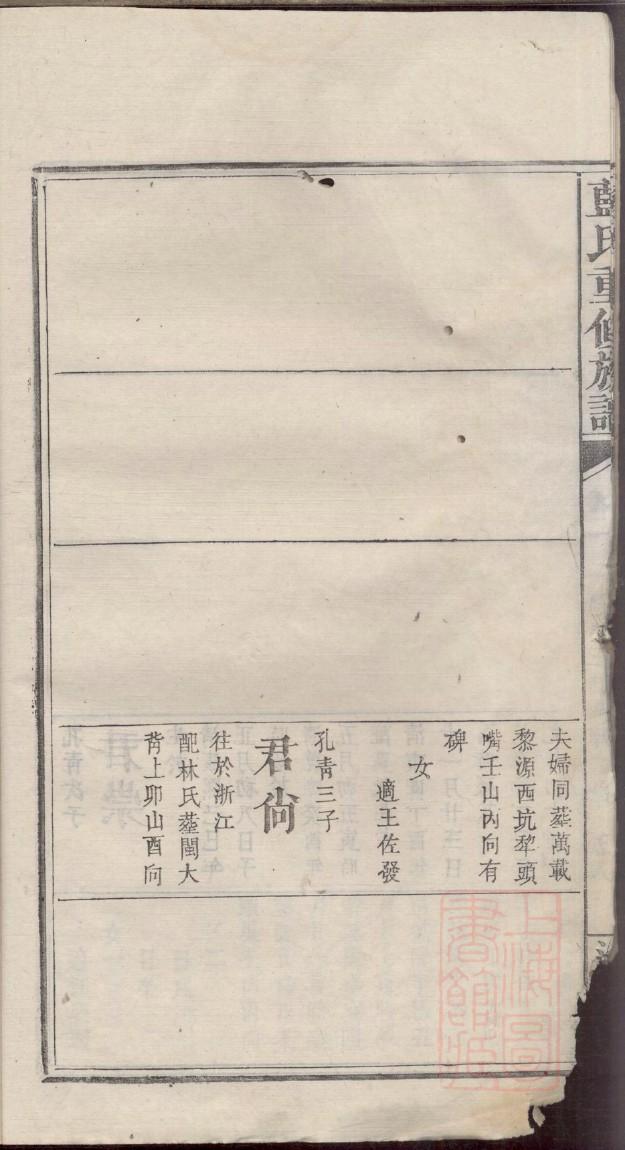 藍氏重修族譜
夫婦同葬萬載
黎源西坑犂頭
嘴壬山丙向有
碑
女
適王佐發
孔青三子
君尙
往於浙江
配林氏葬閩大
背上卯山酉向
上海圖書館藏